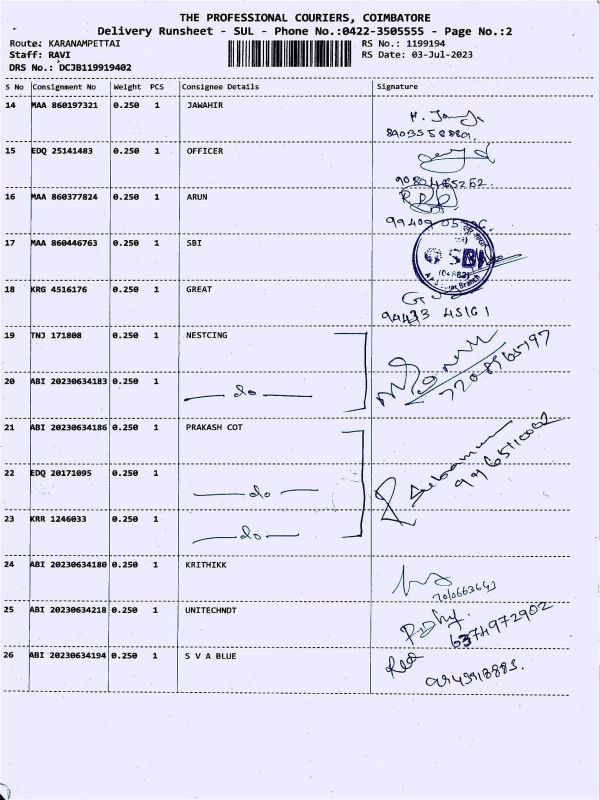 THE PROFESSIONAL COURIERS, COIMBATORE
Delivery Runsheet - SUL - Phone No.:0422-3505555 - Page No.:2
Route: KARANAMPETTAI RS No.: 1199194
Staff: RAVI RS Date: 03-Jul-2023
DRS No.: DCJB119919402
S No Consignment No Weight PCS Consignee Details Signature
14 MAA 860197321 0.250 1 JAWAHIR
15 EDQ 25141483 0.250 1 OFFICER
16 MAA 860377824 0.250 1 ARUN
17 MAA 860446763 0.250 1 SBI
SBI
18 KRG 4516176 0.250 1 GREAT
94433 45161
19 TNJ 171808 0.250 1 NESTCING
20 ABI 20230634183 0.250 1 — do —
21 ABI 20230634186 0.250 1 PRAKASH COT
22 EDQ 20171095 0.250 1 — do —
23 KRR 1246033 0.250 1 — do —
24 ABI 20230634180 0.250 1 KRITHIKK
25 ABI 20230634218 0.250 1 UNITECHNDT
6374972902
26 ABI 20230634194 0.250 1 S V A BLUE